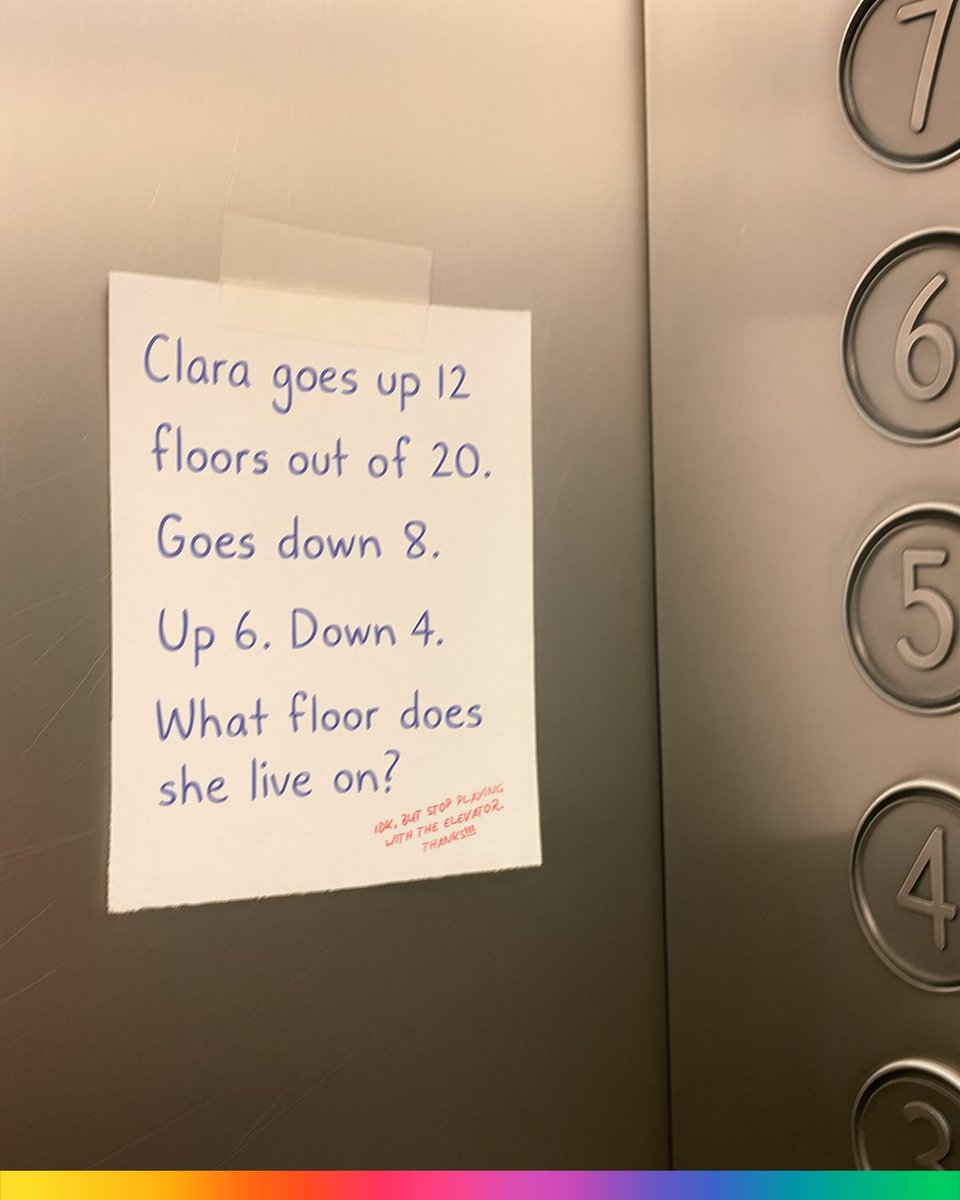 Clara goes up 12
floors out of 20.
Goes down 8.
Up 6. Down 4.
What floor does
she live on?
IDK, BUT STOP PLAYING
WITH THE ELEVATOR.
THANKS!!!
7
6
5
4
3